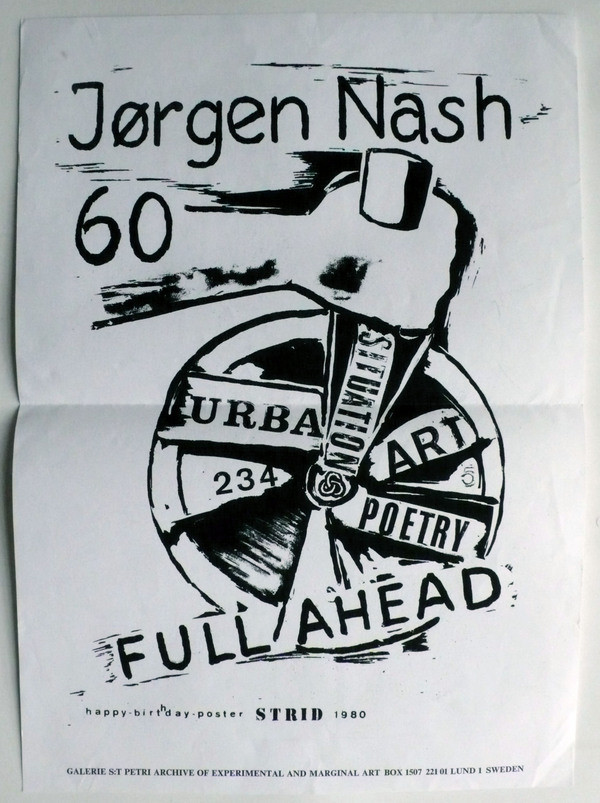 Jørgen Nash
60
SITUATION
URBA
ART
234
POETRY
FULL AHEAD
happy-birthday-poster STRID 1980
GALERIE S:T PETRI ARCHIVE OF EXPERIMENTAL AND MARGINAL ART BOX 1507 221 01 LUND 1 SWEDEN